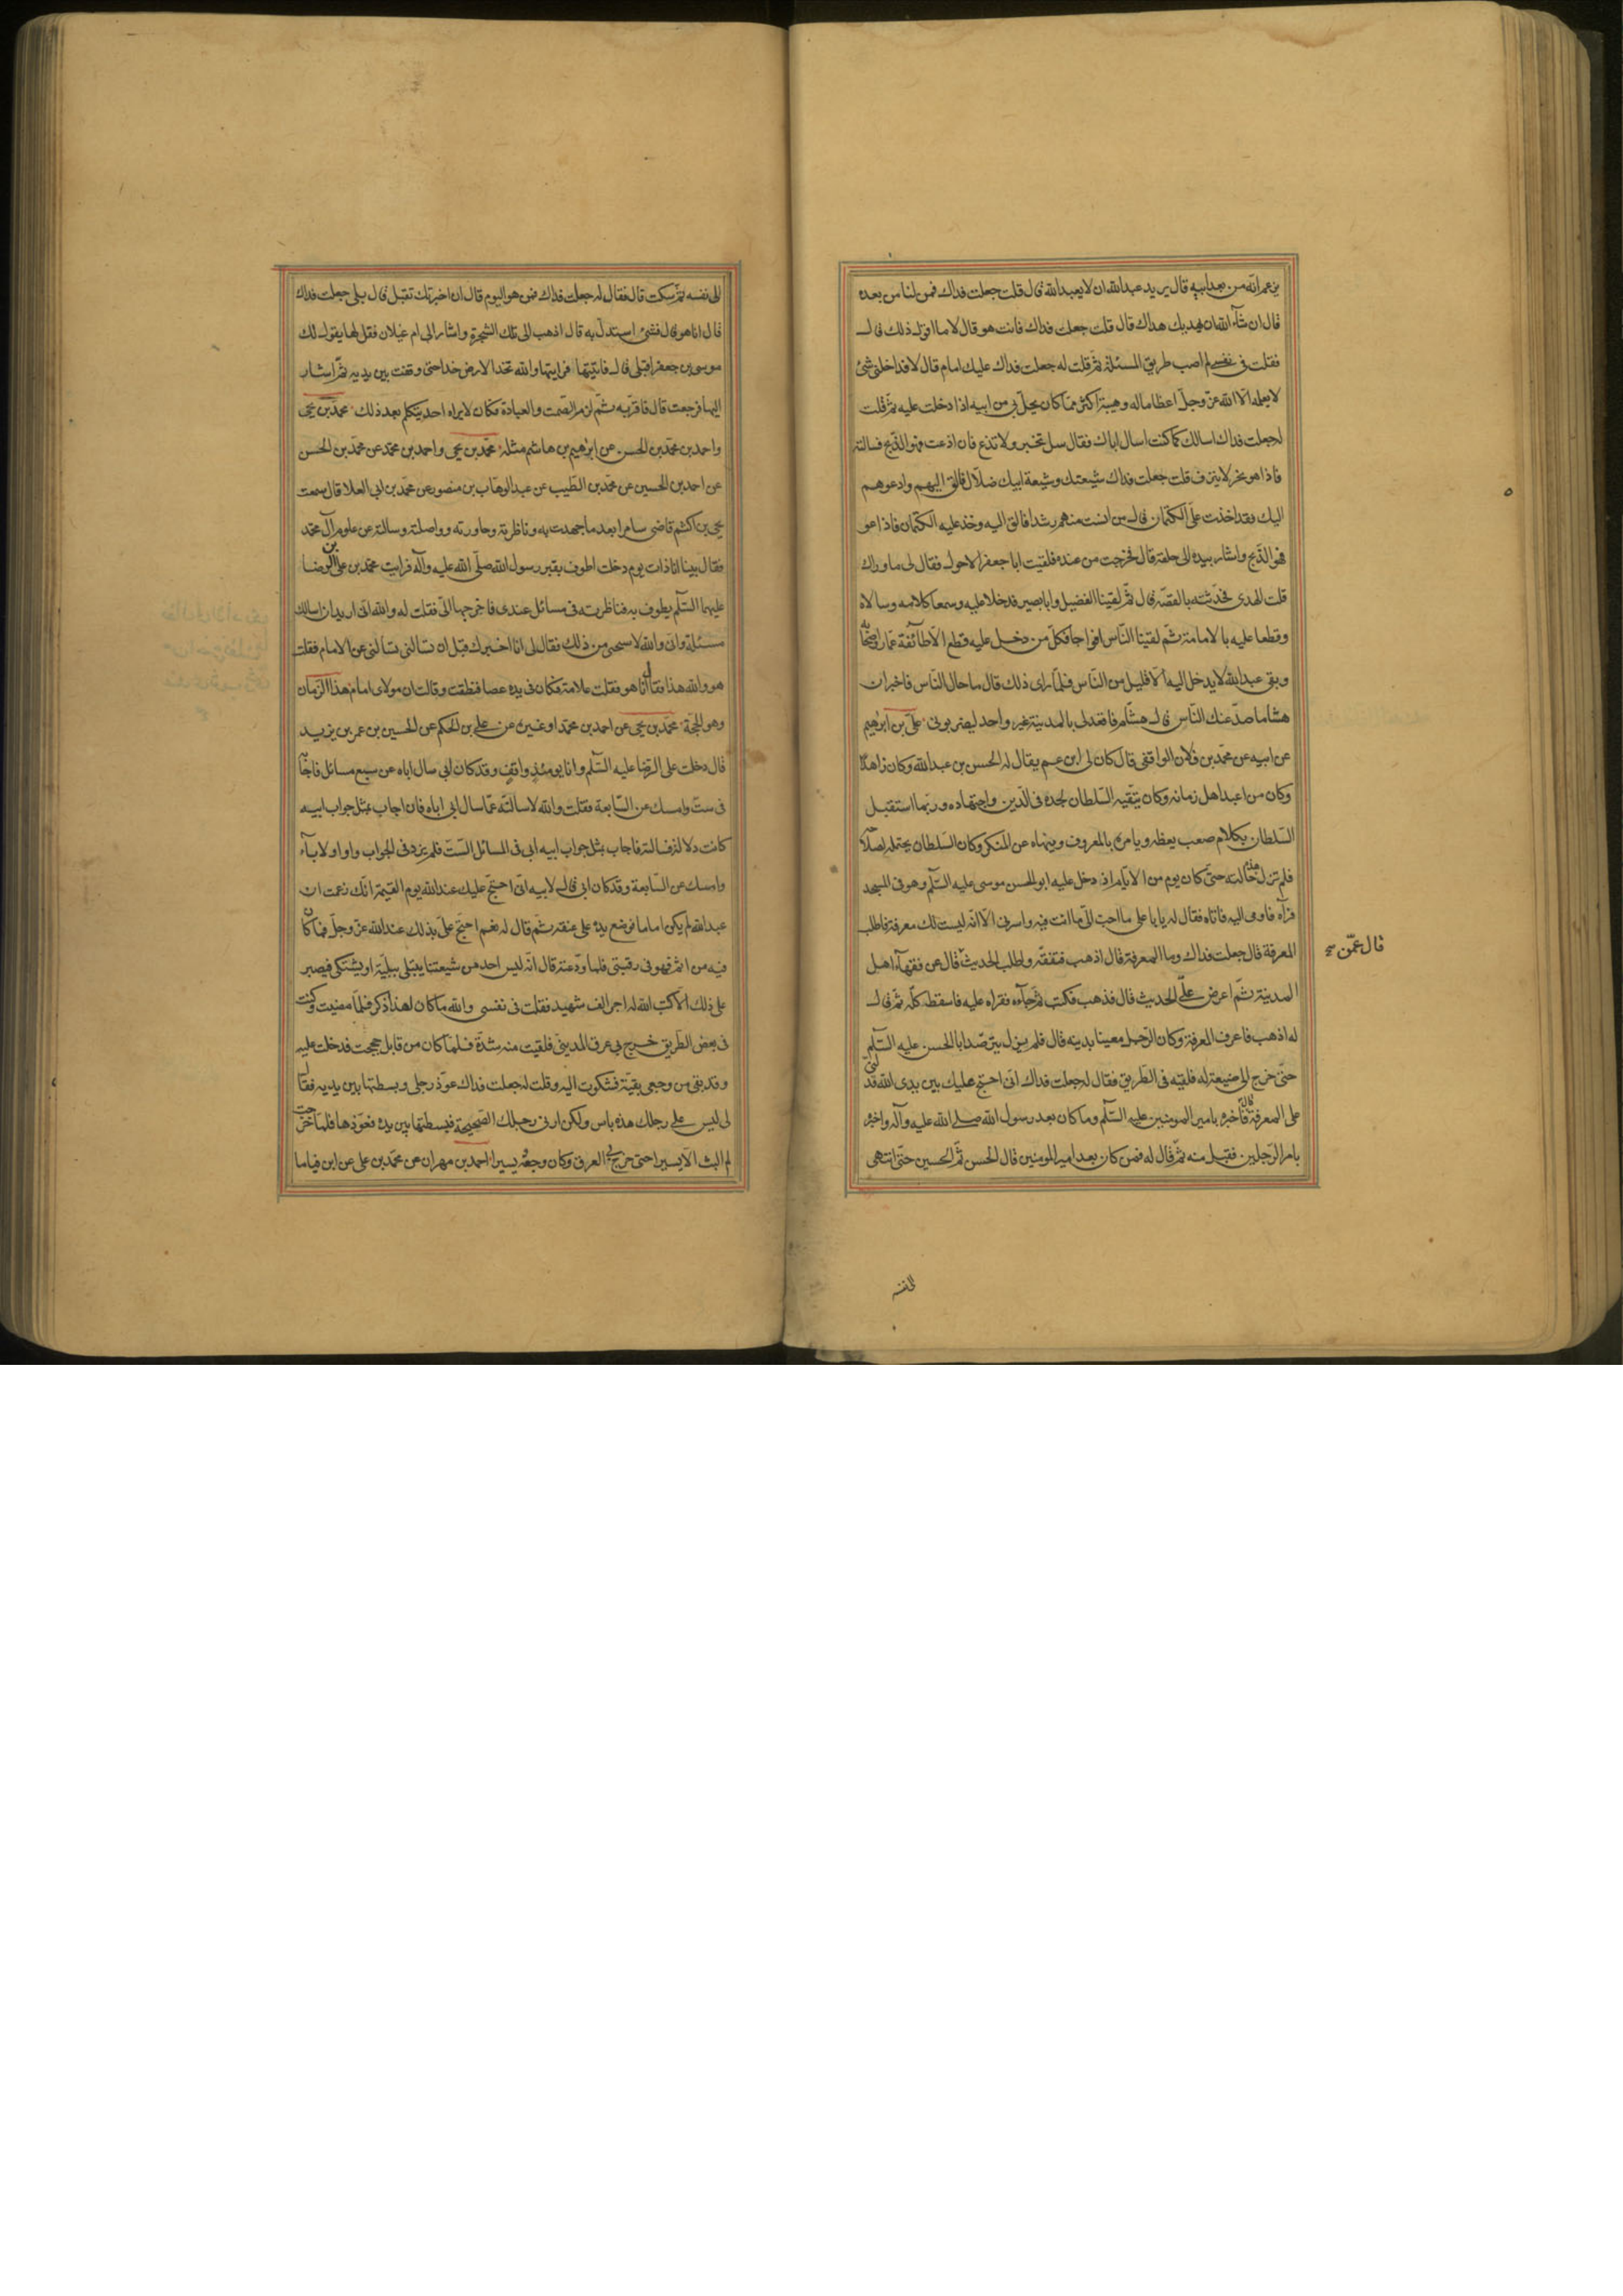 يزعم انه من بعد ابيه قال يريد عبدالله ان لا يعبد الله قال قلت جعلت فداك فمن لنا من بعده
قال ان شآء الله ان يهديك هداك قال قلت جعلت فداك فانت هو قال لا ما اقول ذلك قال
فقلت فى نفسى لم اصب طريق المسئلة ثم قلت له جعلت فداك عليك امام قال لا فداخلنى شئ
لا يعلمه الا الله عز وجل اعظاما له وهيبة اكثر مما كان يحل بى من ابيه اذا دخلت عليه ثم قلت
له جعلت فداك اسالك كما كنت اسال اباك فقال سل تخبر ولا تذع فان اذعت فهو الذبح فسالته
فاذا هو بحر لا ينزف قلت جعلت فداك شيعتك وشيعة ابيك ضلال فالقى اليهم وادعوهم
اليك فقد اخذت على الكتمان قال من انست منهم رشدا فالق اليه وخذ عليه الكتمان فاذا عوا
فهو الذبح واشار بيده الى حلقه قال فخرجت من عنده فلقيت ابا جعفر الاحول فقال لى ما وراك
قلت الهدى فحدثته بالقصة قال ثم لقينا الفضيل وابا بصير فدخلا عليه وسمعا كلامه وسالاه
وقطعا عليه بالامامة ثم لقينا الناس افواجا فكل من دخل عليه قطع الا طائفة عمار واصحابه
وبقى عبدالله لا يدخل اليه الا قليل من الناس فلما راى ذلك قال ما حال الناس فاخبر ان
هشاما صد عنك الناس قال هشام فاقعد لى بالمدينة غير واحد ليضربونى علىّ بن ابرهيم
عن ابيه عن محمد بن فلان الواقفى قال كان لى ابن عم يقال له الحسن بن عبدالله وكان زاهدا
وكان من اعبد اهل زمانه وكان يتقيه السلطان لجده فى الدين واجتهاده وربما استقبل
السلطان بكلام صعب يعظه ويامره بالمعروف وينهاه عن المنكر وكان السلطان يحتمله لصلاحه
فلم تزل هذه حالته حتى كان يوم من الايام اذ دخل عليه ابو الحسن موسى عليه السلم وهو فى المسجد
فرآه فاومى اليه فاتاه فقال له يا با على ما احب الىّ ما انت فيه واسرنى الا انه ليست لك معرفة فاطلب
المعرفة قال جعلت فداك وما المعرفة قال اذهب فتفقه واطلب الحديث قال عن فقهآء اهل
قال عمّن
المدينة ثم اعرض علىّ الحديث قال فذهب فكتب ثم جآءه فقراه عليه فاسقطه كله ثم قال
له اذهب فاعرف المعرفة وكان الرجل معينا بدينه قال فلم يزل يترصد ابا الحسن عليه السلم
حتى خرج الى ضيعة له فلقيه فى الطريق فقال له جعلت فداك انى احتج عليك بين يدى الله فدلنى
على المعرفة قال فاخبره بامير المومنين عليه السلم وما كان بعد رسول الله صلى الله عليه وآله واخبره
بامر الرجلين فقبل منه ثم قال له فمن كان بعد امير المومنين قال الحسن ثم الحسين حتى انتهى
الى نفسه
الى نفسه ثم سكت قال فقال له جعلت فداك فمن هو اليوم قال ان اخبرتك تقبل قال بلى جعلت فداك
قال انا هو قال فشئ استدل به قال اذهب الى تلك الشجرة واشار الى ام غيلان فقل لها يقول لك
موسى بن جعفر اقبلى قال فاتيتها فرايتها والله تخد الارض خدا حتى وقفت بين يديه ثم اشار
اليها فرجعت قال فاقر به ثم لزم الصمت والعبادة فكان لا يراه احد يتكلم بعد ذلك محمد بن يحيى
واحمد بن محمد بن الحسن عن ابرهيم بن هاشم مثله محمد بن يحيى واحمد بن محمد عن محمد بن الحسن
عن احمد بن الحسين عن محمد بن الطيب عن عبد الوهاب بن منصور عن محمد بن ابى العلا قال سمعت
يحيى بن اكثم قاضى سامرا بعد ما جهدت به وناظرته وحاورته وواصلته وسالته عن علوم آل محمد
فقال بينا انا ذات يوم دخلت اطوف بقبر رسول الله صلى الله عليه وآله فرايت محمد بن على بن الرضا
عليهما السلم يطوف به فناظرته فى مسائل عندى فاخرجها الىّ فقلت له والله انى اريد ان اسالك
مسئلة وانى والله لاستحيى من ذلك فقال لى انا اخبرك قبل ان تسالنى تسالنى عن الامام فقلت
هو والله هذا فقال انا هو فقلت علامة فكان فى يده عصا فنطقت وقالت ان مولاى امام هذا الزمان
وهو الحجة محمد بن يحيى عن احمد بن محمد او غيره عن على بن الحكم عن الحسين بن عمر بن يزيد
قال دخلت على الرضا عليه السلم وانا يومئذ واقف وقد كان ابى سال اباه عن سبع مسائل فاجابه
فى ست وامسك عن السابعة فقلت والله لاسالنه عما سال ابى اباه فان اجاب بمثل جواب ابيه
كانت دلالة فسالته فاجاب بمثل جواب ابيه ابى فى المسائل الست فلم يزد فى الجواب واوا ولا يآء
وامسك عن السابعة وقد كان ابى قال لابيه انى احتج عليك عند الله يوم القيمة انك زعمت ان
عبدالله لم يكن اماما فوضع يده على عنقه ثم قال له نعم احتج علىّ بذلك عند الله عز وجل فما كان
فيه من اثم فهو فى رقبتى فلما ودعته قال انه ليس احد من شيعتنا يبتلى ببلية او يشتكى فيصبر
على ذلك الا كتب الله له اجر الف شهيد فقلت فى نفسى والله ما كان لهذا ذكر فلما مضيت وكنت
فى بعض الطريق خرج بى عرق المدينى فلقيت منه شدة فلما كان من قابل حججت فدخلت عليه
وقد بقى من وجعى بقية فشكوت اليه وقلت له جعلت فداك عوذ رجلى وبسطتها بين يديه فقال
لى ليس على رجلك هذه باس ولكن ارنى رجلك الصحيحة فبسطتها بين يديه فعوذها فلما خرجت
لم البث الا يسيرا حتى خرج بى العرق وكان وجعه يسيرا احمد بن مهران عن محمد بن على عن ابن قياما